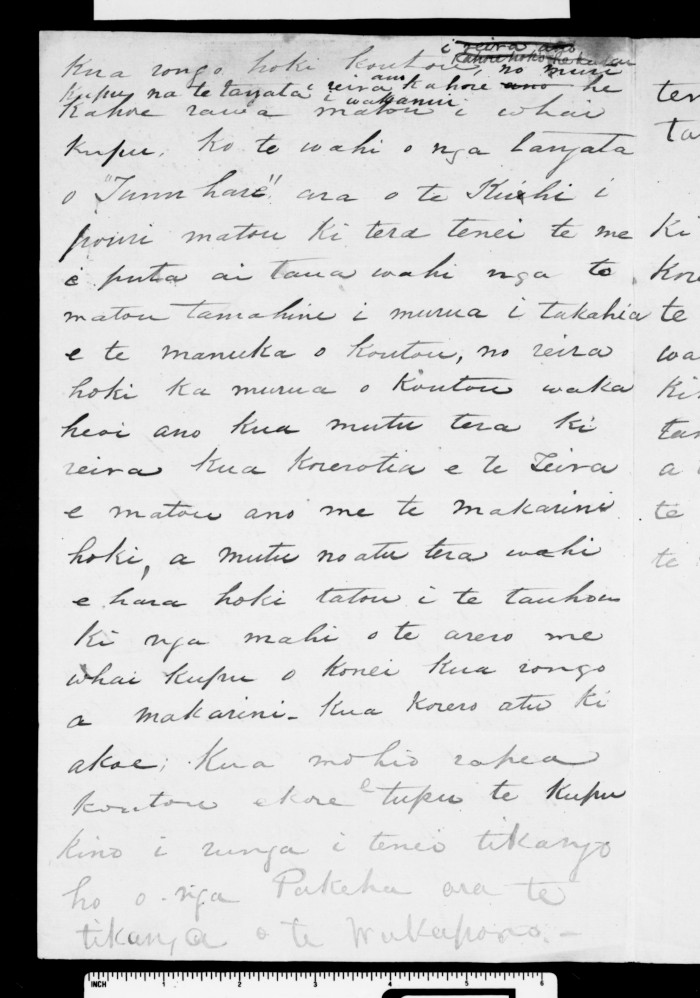 i reira ano
kahore hoki he kupu
Kua rongo hoki koutou, no muri
kupu na te tangata i reira ano kahore ano he
i wakamui
Kahore rawa matou i whai
kupu. ko te wahi o nga tangata
o "Tunuhare" ara o te Kuihi i
pouri matou ki tera tenei te me
i puta ai taua wahi nga to
matou tamahine i murua i takahia
e te manuka o koutou, no reira
hoki ka murua o koutou waka
heoi ano kua mutu tera ki
reira kua korerotia e te Teira
e matou ano me te makarini
hoki, a mutu noatu tera wahi
e hara hoki tatou i te tauhou
ki nga mahi o te arero me
whai kupu o konei kua rongo
a makarini - kua korero atu ki
akoe; Kua mohio rapea
koutou ekore e tupu te kupu
kino i runga i tenei tikanga
ho o nga Pakeha ara te
tikanga o te Wakapono. -
ter
ta
Ki
Kore
te
wa
Ki
tan
a
te
te
INCH 1 2 3 4 5 6